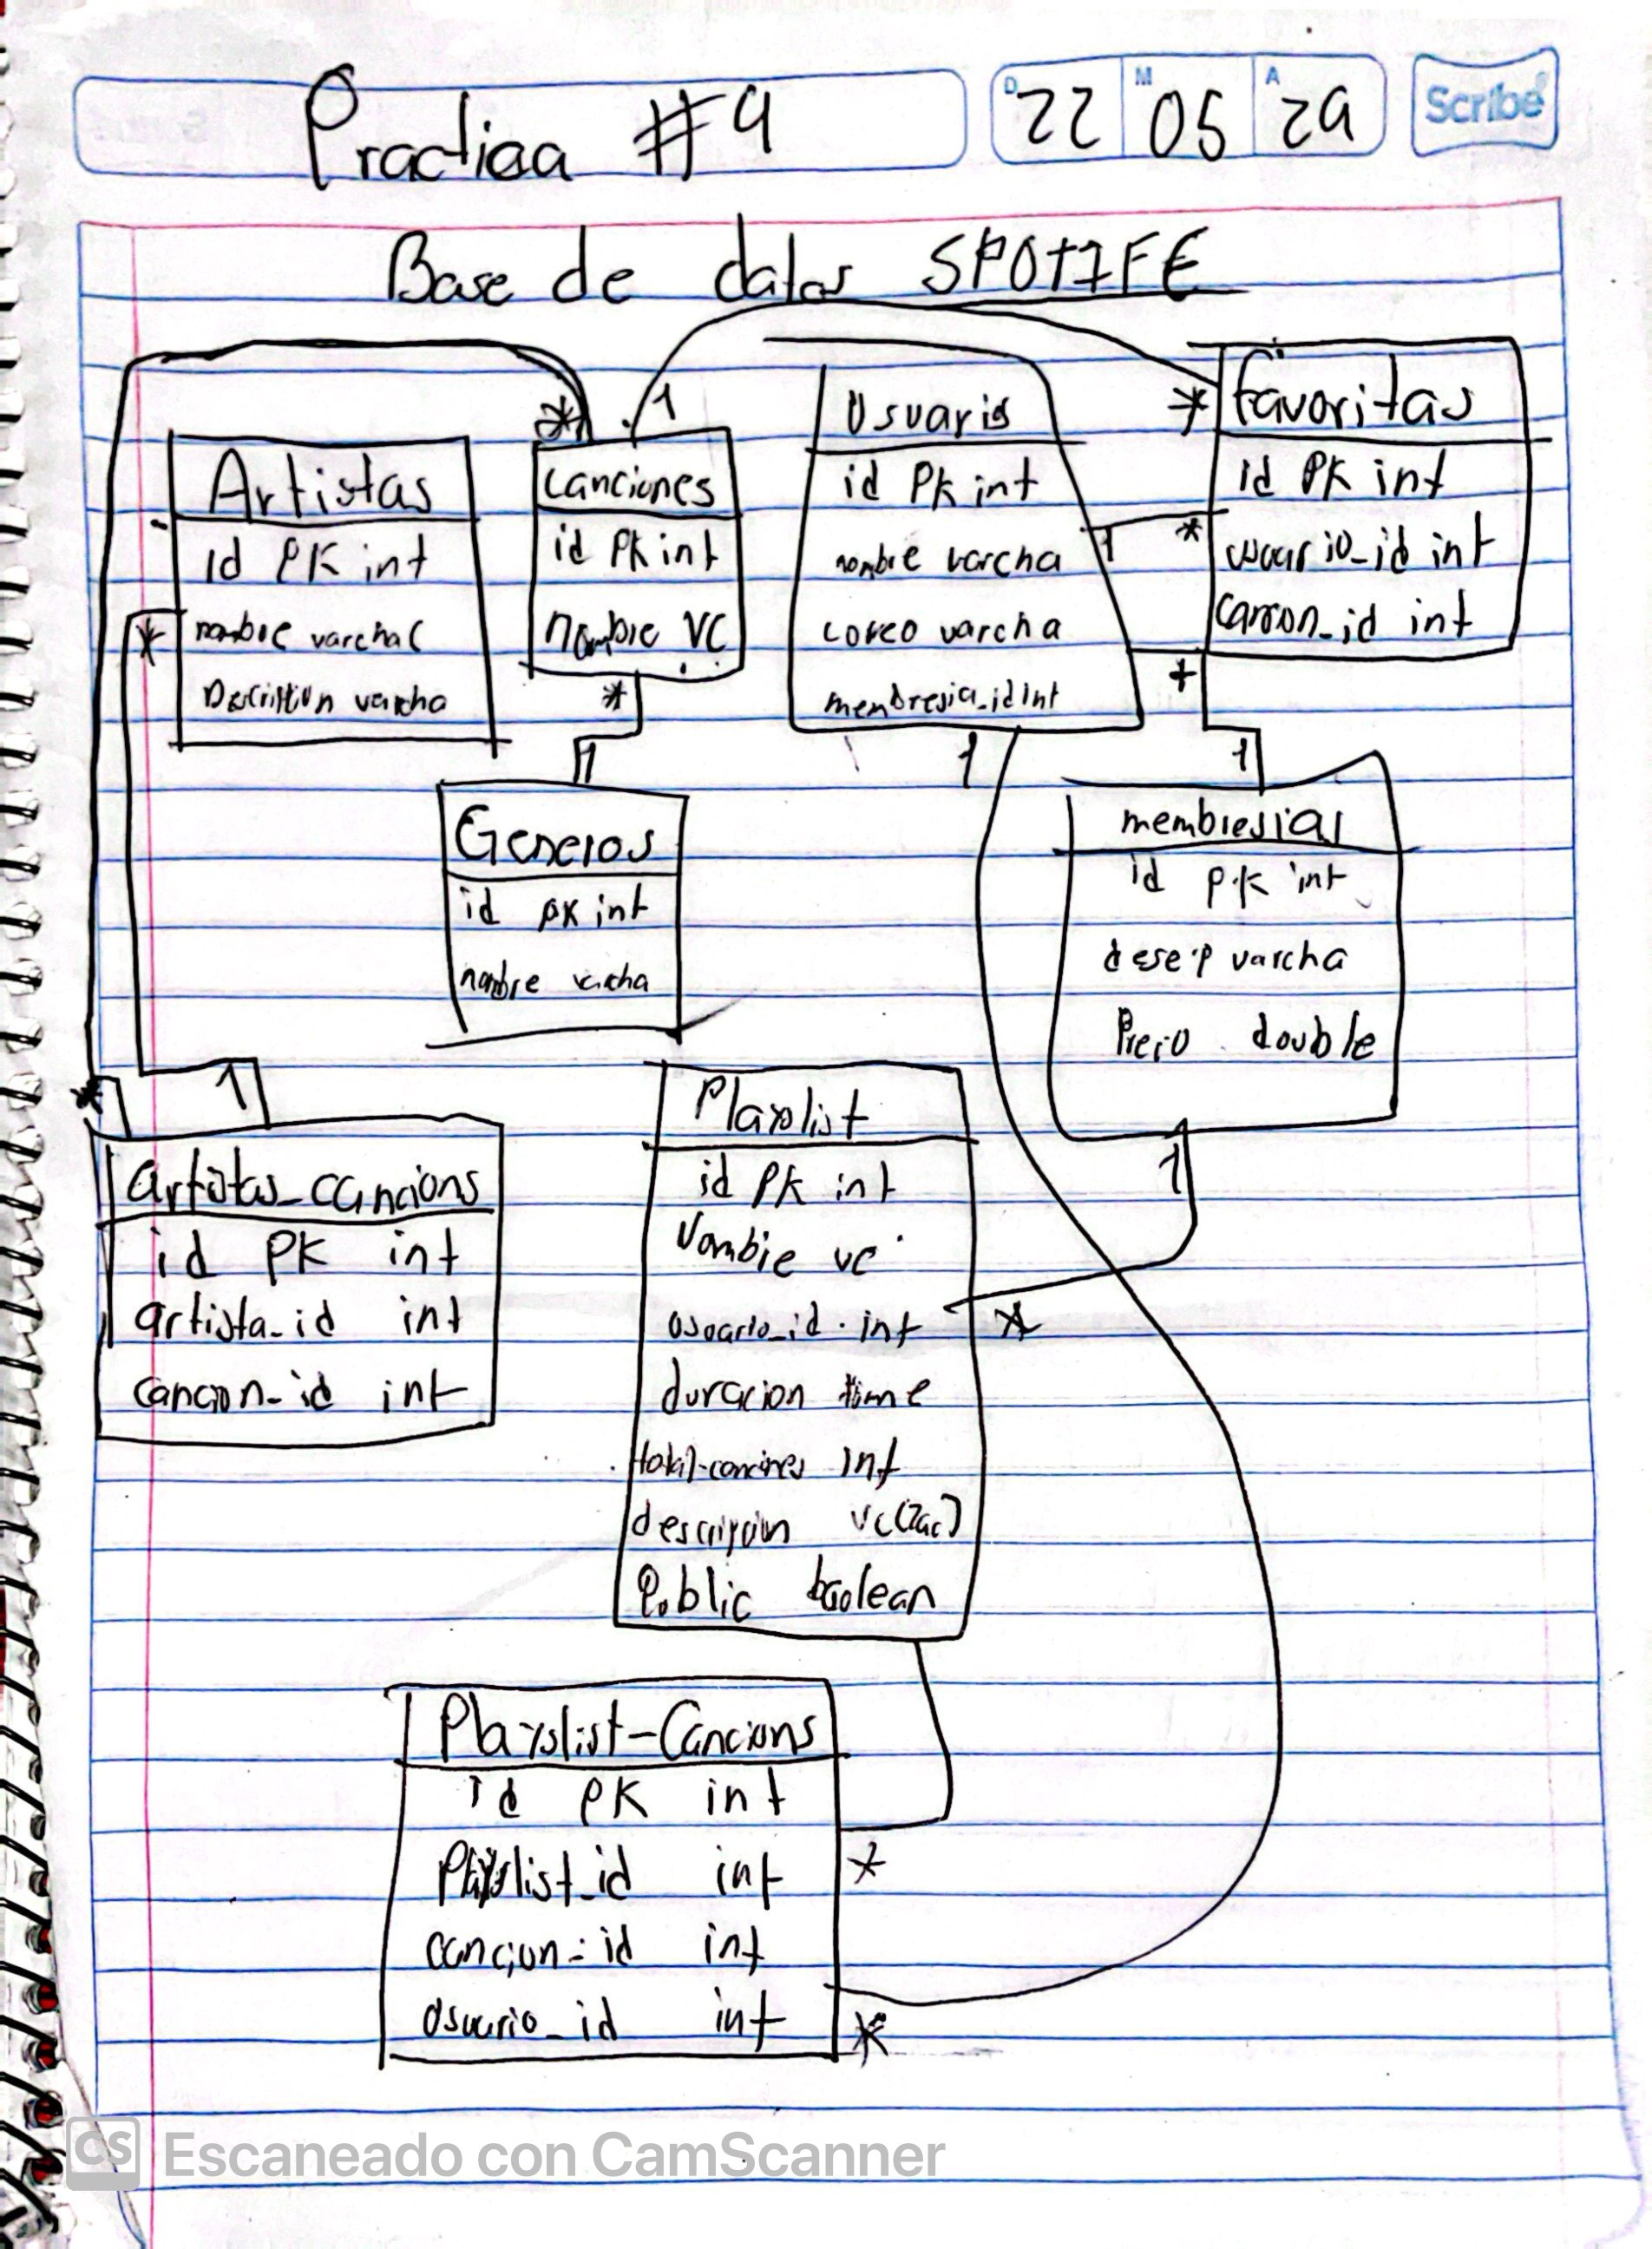 Practica #4
D 22 M 05 A 24
Scribe
Base de datos SPOTIFE
Artistas
id PK int
nombre varchar
Descrition varcha
*
canciones
id PK int
nombre VC
*
1
*
Usuaris
id PK int
nombre varcha
correo varcha
membresia_id int
1
1
*
favoritas
id PK int
usuario_id int
cancion_id int
*
*
*
1
Generos
id pk int
nombre varcha
1
membresias
id pk int
descp varcha
Precio double
1
*
1
artistas_cancions
id PK int
artista_id int
cancion_id int
Playlist
id PK int
Nombre vc
usuario_id int
duracion time
total-canciones int
descripcion vc
Public boolean
*
Playslist-Cancions
id PK int
Playslist_id int
cancion-id int
usuario_id int
*
*
CS Escaneado con CamScanner